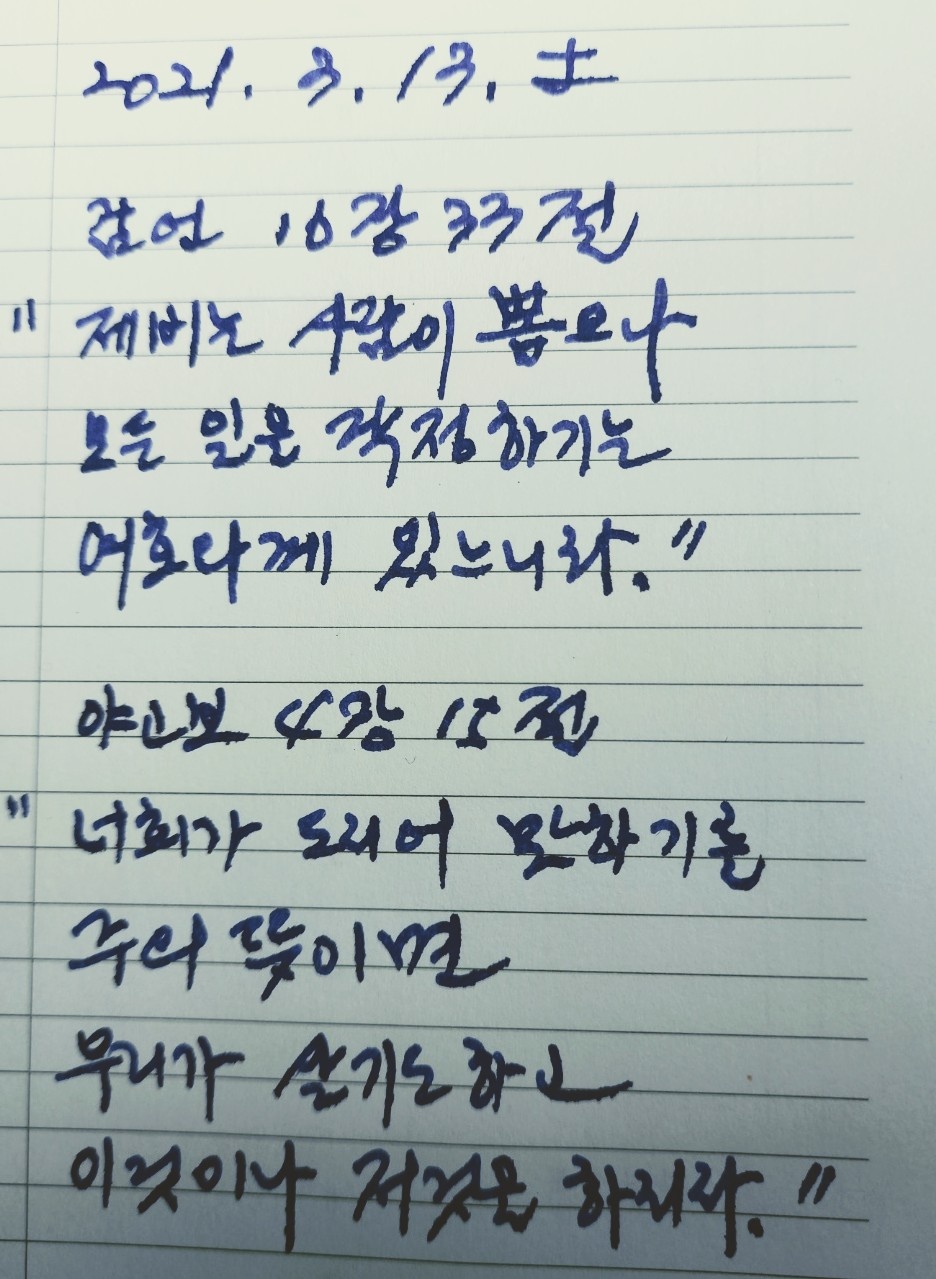 2021. 3. 13. 土
잠언 16장 33절
"제비는 사람이 뽑으나
모든 일을 작정하기는
여호와께 있느니라."
야고보 4장 15절
"너희가 도리어 말하기를
주의 뜻이면
우리가 살기도 하고
이것이나 저것을 하리라."